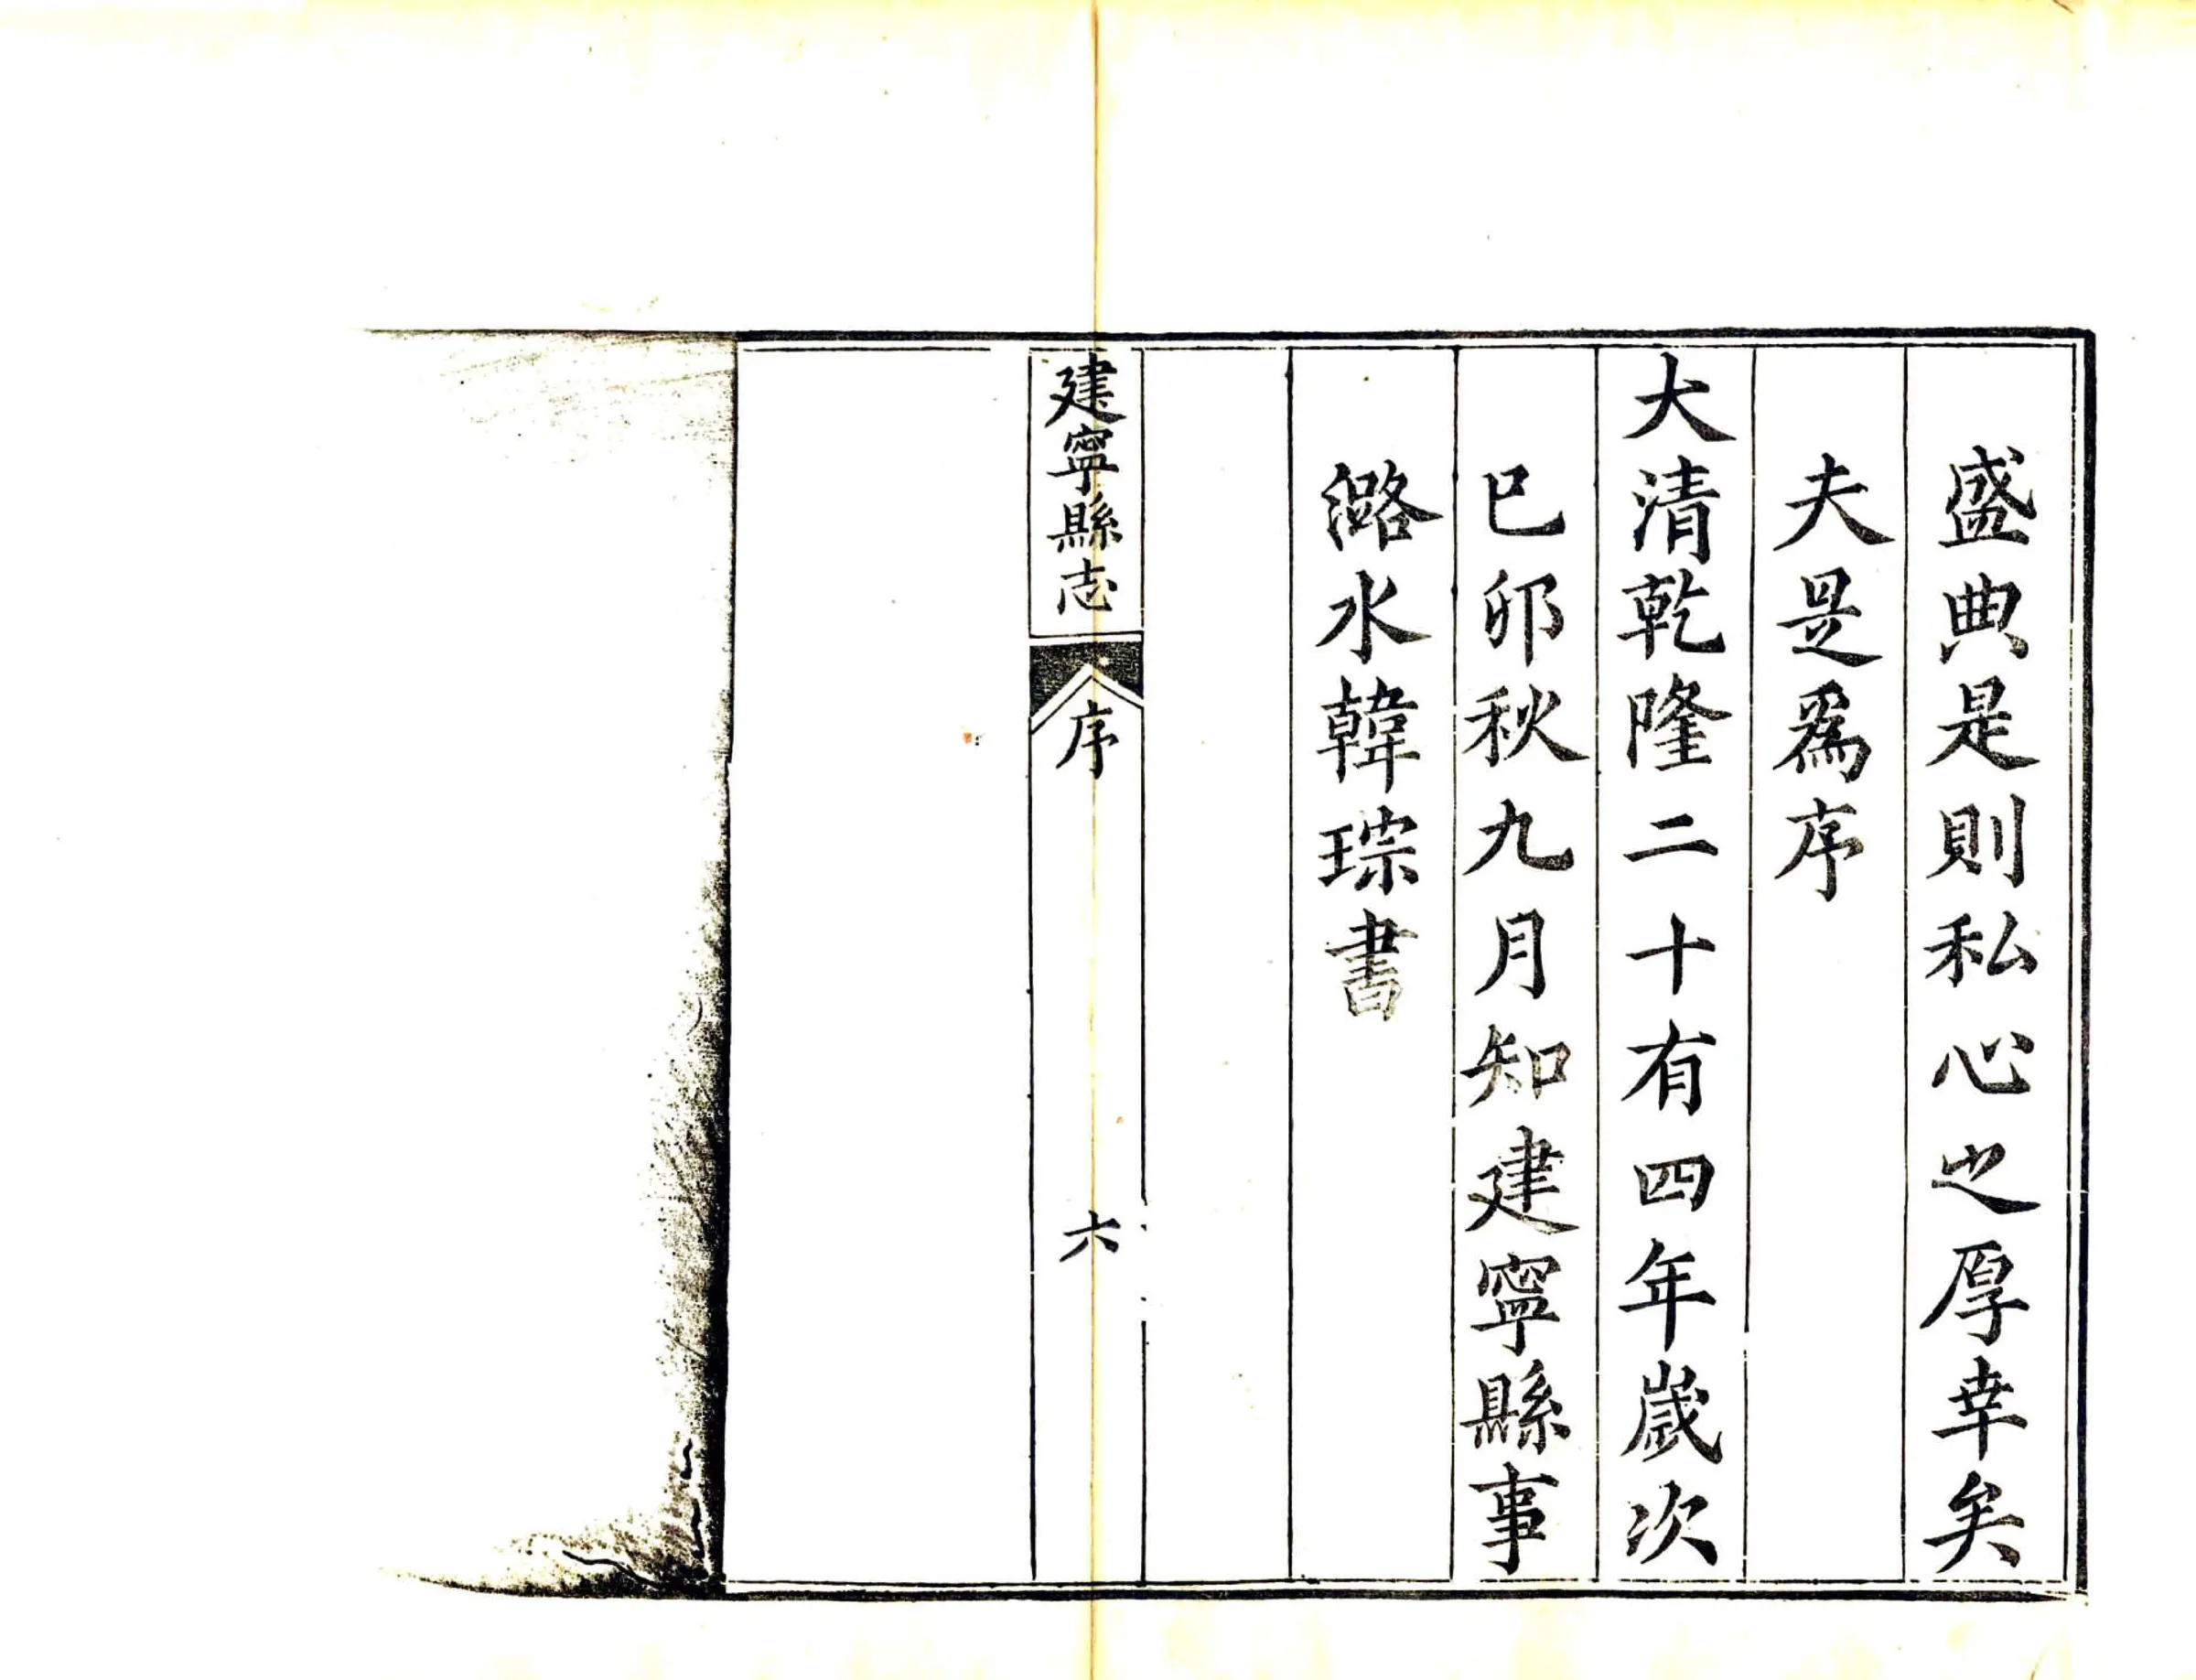 盛典是則私心之厚幸矣
夫是爲序
大清乾隆二十有四年歲次
己卯秋九月知建寧縣事
潞水韓琮書
建寧縣志
序
六